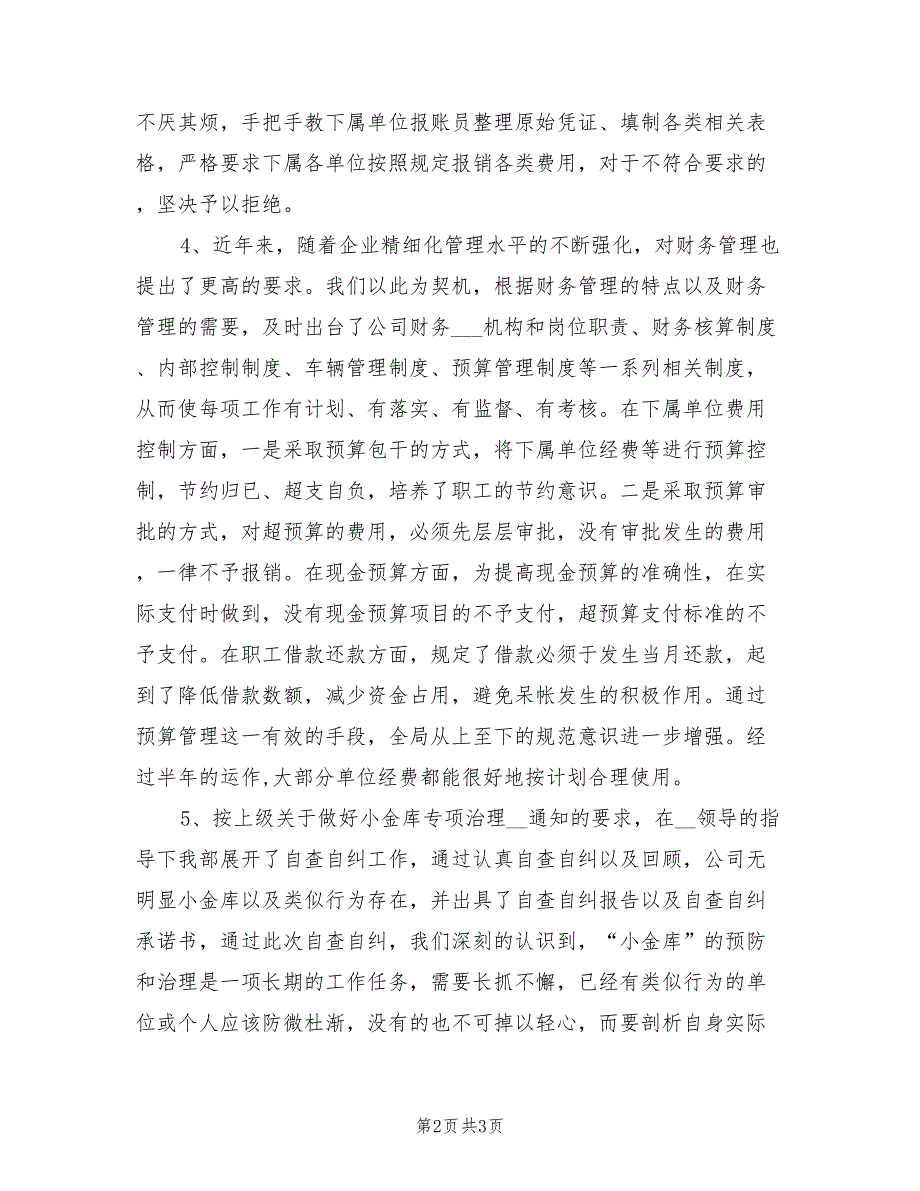 不厌其烦，手把手教下属单位报账员整理原始凭证、填制各类相关表
格，严格要求下属各单位按照规定报销各类费用，对于不符合要求的
，坚决予以拒绝。
4、近年来，随着企业精细化管理水平的不断强化，对财务管理也
提出了更高的要求。我们以此为契机，根据财务管理的特点以及财务
管理的需要，及时出台了公司财务___机构和岗位职责、财务核算制度
、内部控制制度、车辆管理制度、预算管理制度等一系列相关制度，
从而使每项工作有计划、有落实、有监督、有考核。在下属单位费用
控制方面，一是采取预算包干的方式，将下属单位经费等进行预算控
制，节约归已、超支自负，培养了职工的节约意识。二是采取预算审
批的方式，对超预算的费用，必须先层层审批，没有审批发生的费用
，一律不予报销。在现金预算方面，为提高现金预算的准确性，在实
际支付时做到，没有现金预算项目的不予支付，超预算支付标准的不
予支付。在职工借款还款方面，规定了借款必须于发生当月还款，起
到了降低借款数额，减少资金占用，避免呆帐发生的积极作用。通过
预算管理这一有效的手段，全局从上至下的规范意识进一步增强。经
过半年的运作,大部分单位经费都能很好地按计划合理使用。
5、按上级关于做好小金库专项治理__通知的要求，在__领导的指
导下我部展开了自查自纠工作，通过认真自查自纠以及回顾，公司无
明显小金库以及类似行为存在，并出具了自查自纠报告以及自查自纠
承诺书，通过此次自查自纠，我们深刻的认识到，“小金库”的预防
和治理是一项长期的工作任务，需要长抓不懈，已经有类似行为的单
位或个人应该防微杜渐，没有的也不可掉以轻心，而要剖析自身实际
第2页 共3页